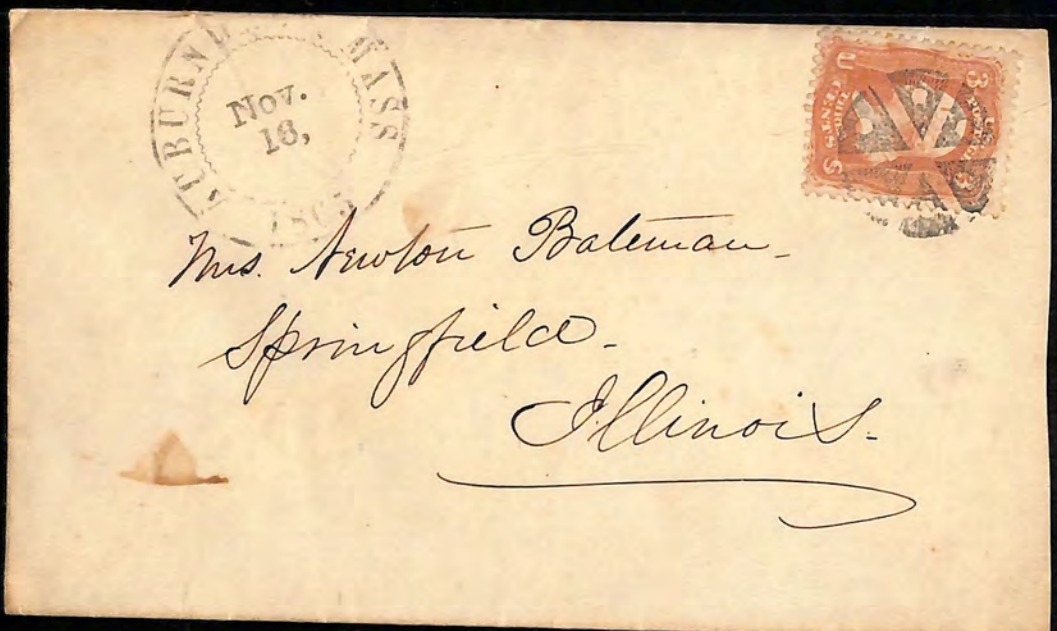 MASS
Nov.
16,
1865
U S
3 3
U.S. POSTAGE
THREE CENTS
Mrs. Newton Bateman-
Springfield-
Illinois.